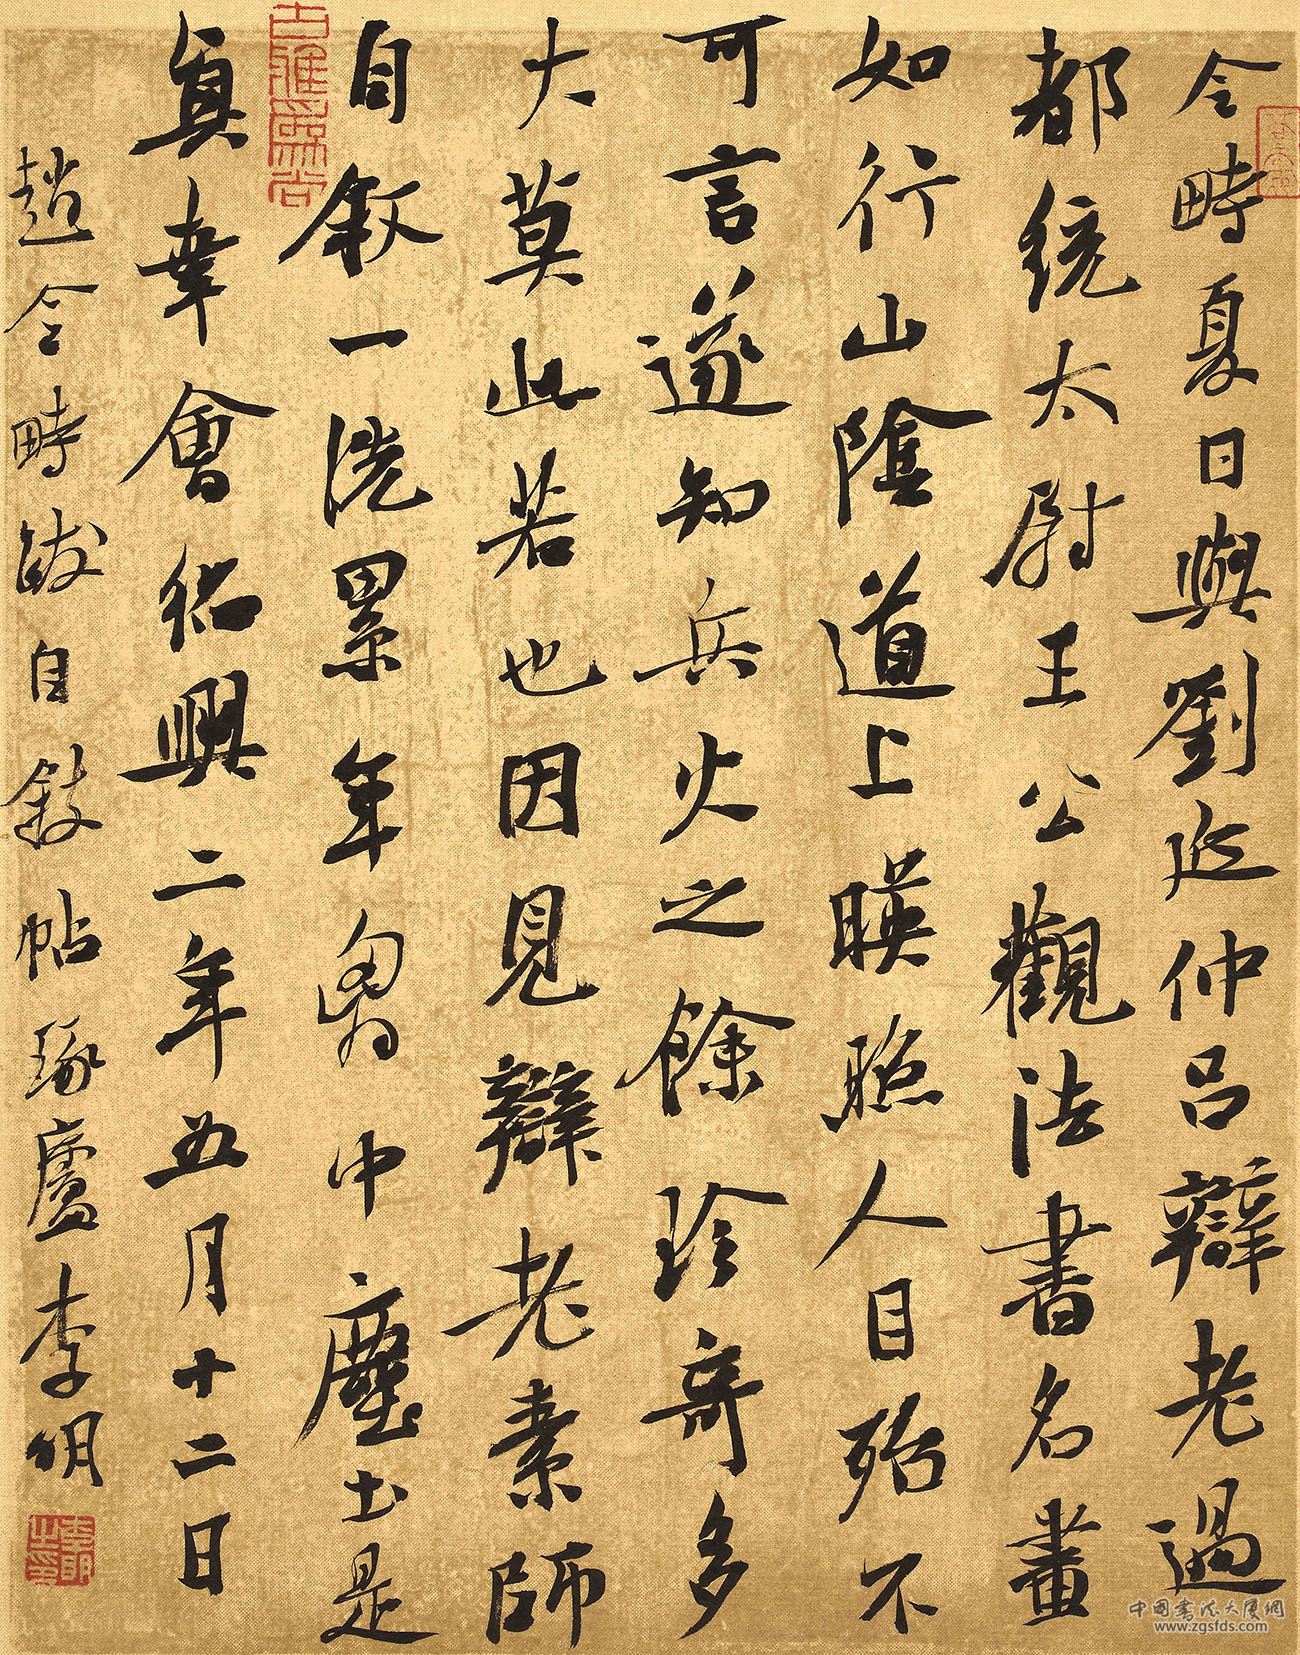 令畤夏日與劉延仲呂辯老過
都統太尉王公觀法書名畫
如行山陰道上暎照人目殆不
可言遂知兵火之餘珍奇多
大莫此若也因見辯老素師
自叙一洗累年胷中塵土是
真幸會紹興二年五月十二日
趙令畤跋自敍帖 琢廬李明
李明之印
中国书法大厦网
www.zgsfds.com